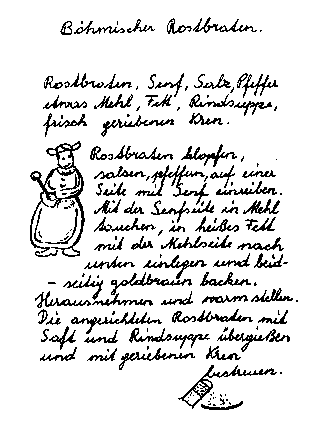 Böhmischer Rostbraten.
Rostbraten, Senf, Salz, Pfeffer
etwas Mehl, Fett, Rindsuppe,
frisch geriebenen Kren.
Rostbraten klopfen,
salzen, pfeffern, auf einer
Seite mit Senf einreiben.
Mit der Senfseite in Mehl
tauchen, in heißes Fett
mit der Mehlseite nach
unten einlegen und beid-
- seitig goldbraun backen.
Herausnehmen und warm stellen.
Die angerichteten Rostbraten mit
Saft und Rindsuppe übergießen
und mit geriebenen Kren
bestreuen.